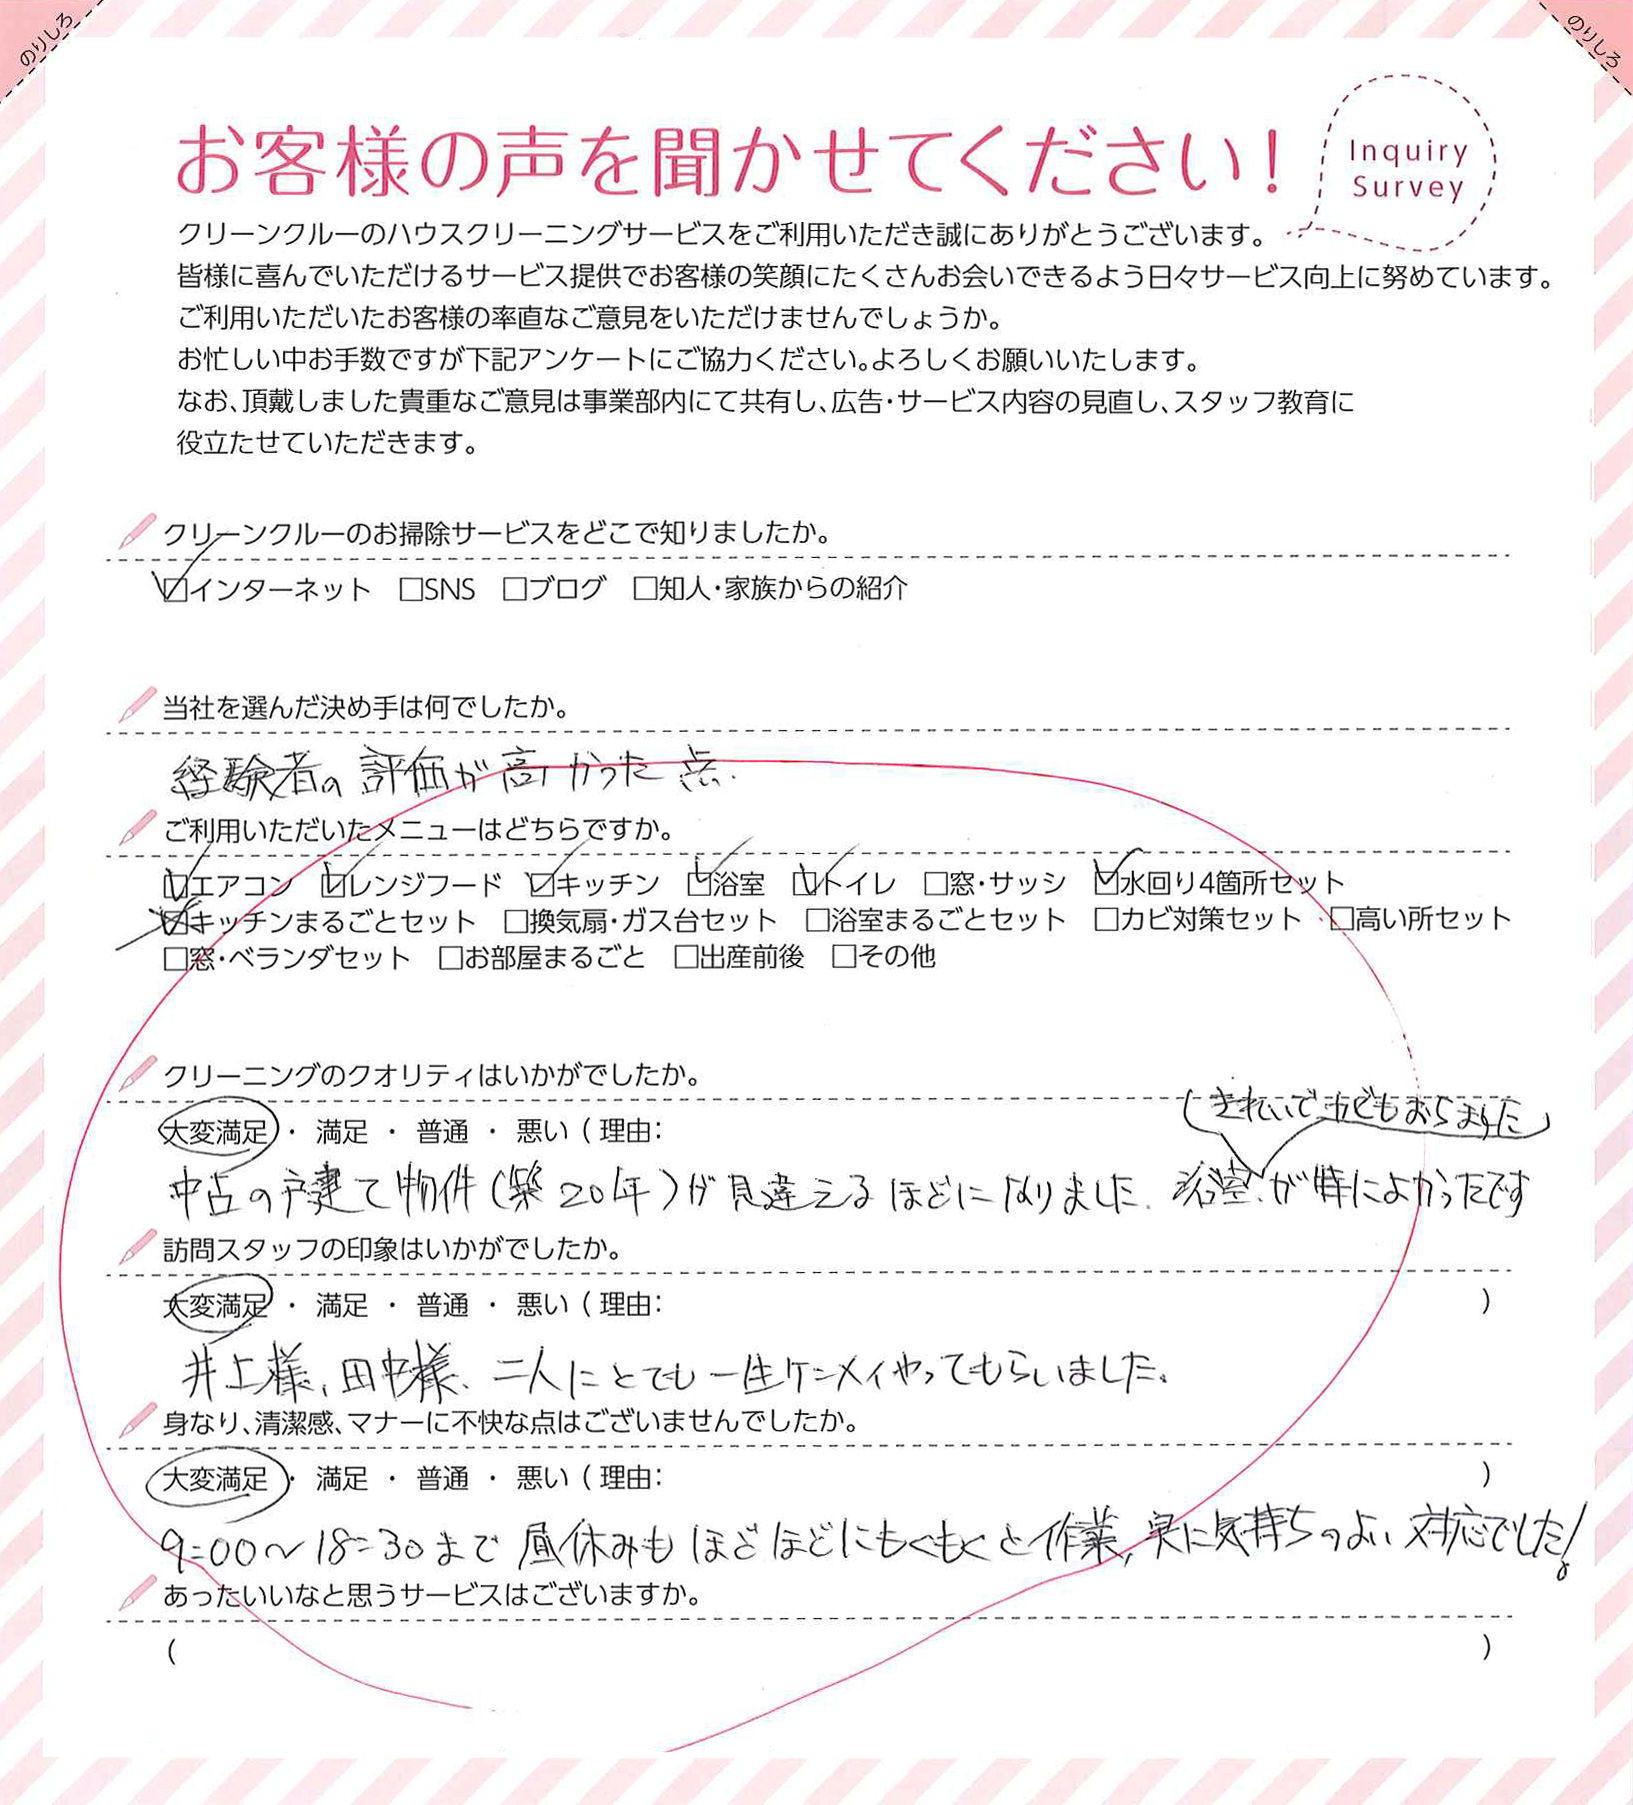 のりしろ
のりしろ
お客様の声を聞かせてください!
Inquiry
Survey
クリーンクルーのハウスクリーニングサービスをご利用いただき誠にありがとうございます。
皆様に喜んでいただけるサービス提供でお客様の笑顔にたくさんお会いできるよう日々サービス向上に努めています。
ご利用いただいたお客様の率直なご意見をいただけませんでしょうか。
お忙しい中お手数ですが下記アンケートにご協力ください。よろしくお願いいたします。
なお、頂戴しました貴重なご意見は事業部内にて共有し、広告・サービス内容の見直し、スタッフ教育に
役立たせていただきます。
クリーンクルーのお掃除サービスをどこで知りましたか。
☑インターネット □SNS □ブログ □知人・家族からの紹介
当社を選んだ決め手は何でしたか。
経験者の評価が高かった点.
ご利用いただいたメニューはどちらですか。
☑エアコン ☑レンジフード ☑キッチン ☑浴室 ☑トイレ □窓・サッシ ☑水回り4箇所セット
☑キッチンまるごとセット □換気扇・ガス台セット □浴室まるごとセット □カビ対策セット □高い所セット
□窓・ベランダセット □お部屋まるごと □出産前後 □その他
クリーニングのクオリティはいかがでしたか。
大変満足 ・ 満足 ・ 普通 ・ 悪い ( 理由:
(きれいでカビもおちました)
中古の戸建て物件(築20年)が見違えるほどになりました. 浴室が特によかったです
訪問スタッフの印象はいかがでしたか。
大変満足 ・ 満足 ・ 普通 ・ 悪い ( 理由: )
井上様、田中様、二人にとても一生ケンメイやってもらいました。
身なり、清潔感、マナーに不快な点はございませんでしたか。
大変満足 ・ 満足 ・ 普通 ・ 悪い ( 理由: )
9:00～18:30まで昼休みもほどほどにもくもくと作業,実に気持ちのよい対応でした!
あったいいなと思うサービスはございますか。
( )